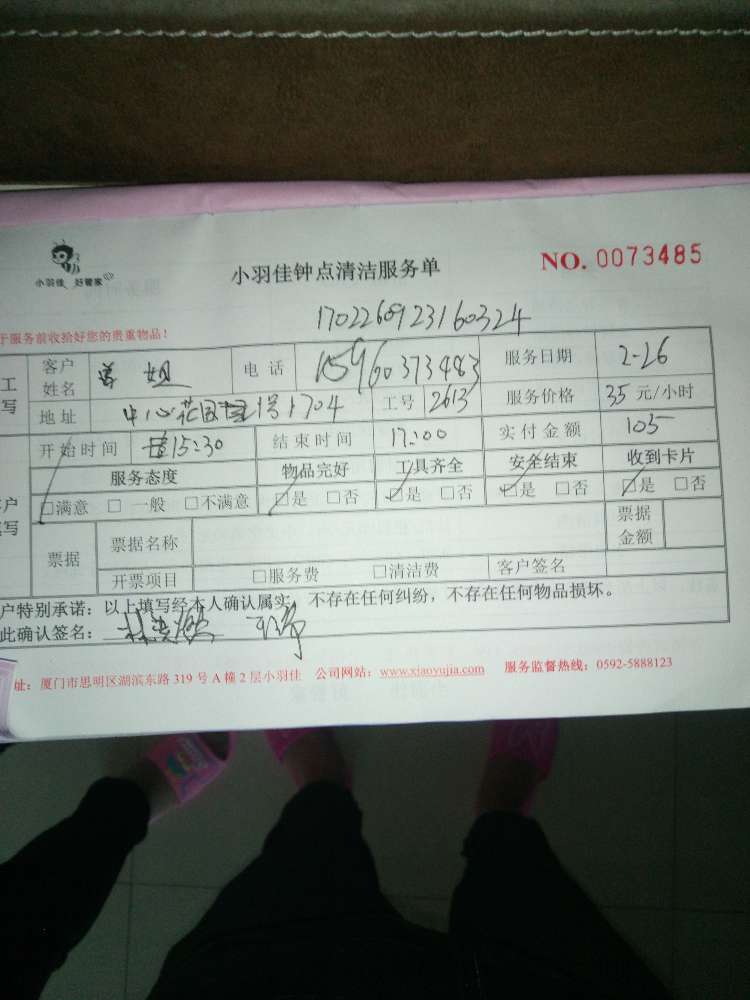 小羽佳 好管家
小羽佳钟点清洁服务单
NO. 0073485
1702260923160324
于服务前收拾好您的贵重物品!
工 客户姓名 姐 电话 15960373483 服务日期 2-26
写 地址 中心花园 1704 工号 2613 服务价格 35 元/小时
开始时间 15:30 结束时间 17:00 实付金额 105
户 服务态度 物品完好 工具齐全 安全结束 收到卡片
写 □满意 □ 一般 □不满意 □是 □否 □是 □否 □是 □否 □是 □否
票据 票据名称 票据金额
开票项目 □服务费 □清洁费 客户签名
户特别承诺:以上填写经本人确认属实,不存在任何纠纷,不存在任何物品损坏。
此确认签名:
址:厦门市思明区湖滨东路 319 号 A 幢 2 层小羽佳 公司网站:www.xiaoyujia.com 服务监督热线:0592-5888123